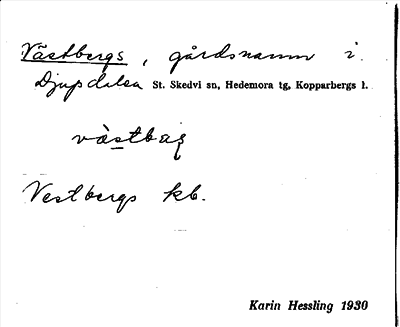 Västbergs, gårdsnamn i
Djupdalen St. Skedvi sn, Hedemora tg, Kopparbergs l.
västbaʒ
Vestbergs kb.
Karin Hessling 1930